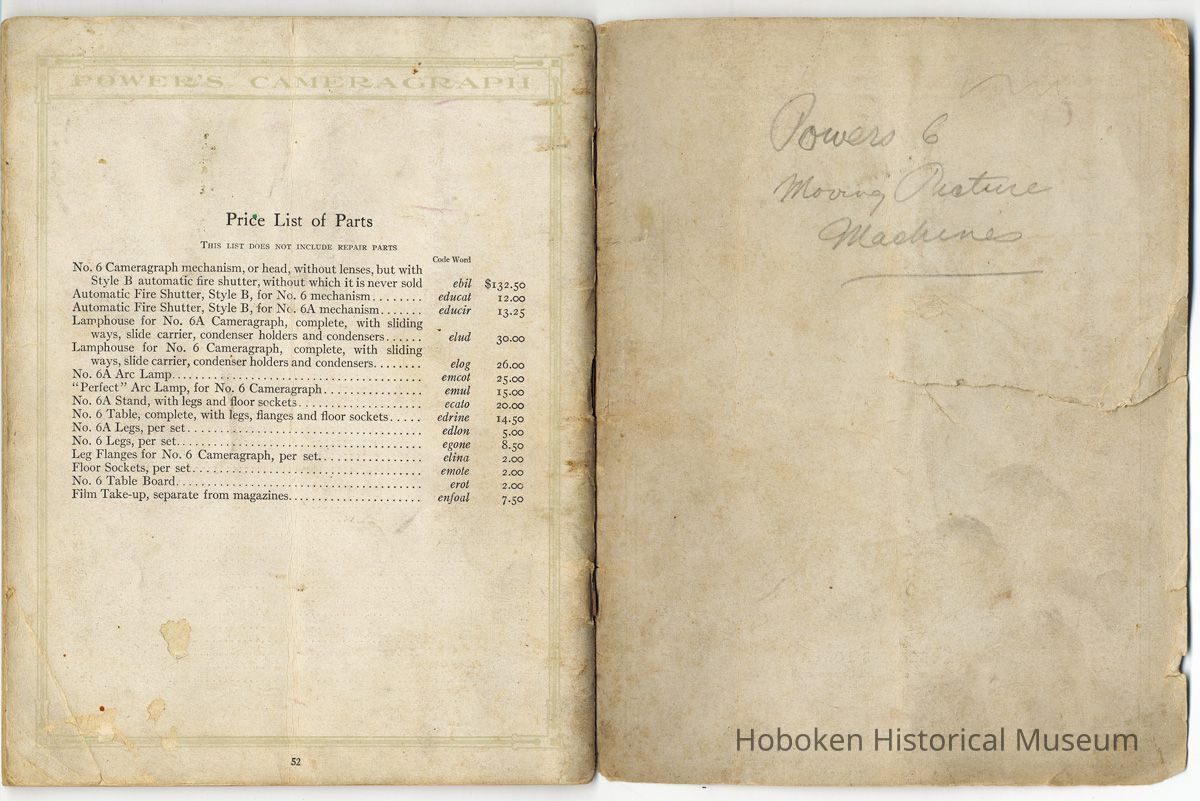 POWER'S CAMERAGRAPH
Price List of Parts
THIS LIST DOES NOT INCLUDE REPAIR PARTS
Code Word
No. 6 Cameragraph mechanism, or head, without lenses, but with
Style B automatic fire shutter, without which it is never sold ebil $132.50
Automatic Fire Shutter, Style B, for No. 6 mechanism........ educat 12.00
Automatic Fire Shutter, Style B, for No. 6A mechanism....... educir 13.25
Lamphouse for No. 6A Cameragraph, complete, with sliding
ways, slide carrier, condenser holders and condensers...... elud 30.00
Lamphouse for No. 6 Cameragraph, complete, with sliding
ways, slide carrier, condenser holders and condensers........ elog 26.00
No. 6A Arc Lamp........................................ emcot 25.00
"Perfect" Arc Lamp, for No. 6 Cameragraph................ emul 15.00
No. 6A Stand, with legs and floor sockets.................... ecato 20.00
No. 6 Table, complete, with legs, flanges and floor sockets..... edrine 14.50
No. 6A Legs, per set..................................... edlon 5.00
No. 6 Legs, per set...................................... egone 8.50
Leg Flanges for No. 6 Cameragraph, per set................ elina 2.00
Floor Sockets, per set.................................... emote 2.00
No. 6 Table Board...................................... erot 2.00
Film Take-up, separate from magazines..................... enfoal 7.50
52
Powers 6
Moving Picture
Machines
Hoboken Historical Museum